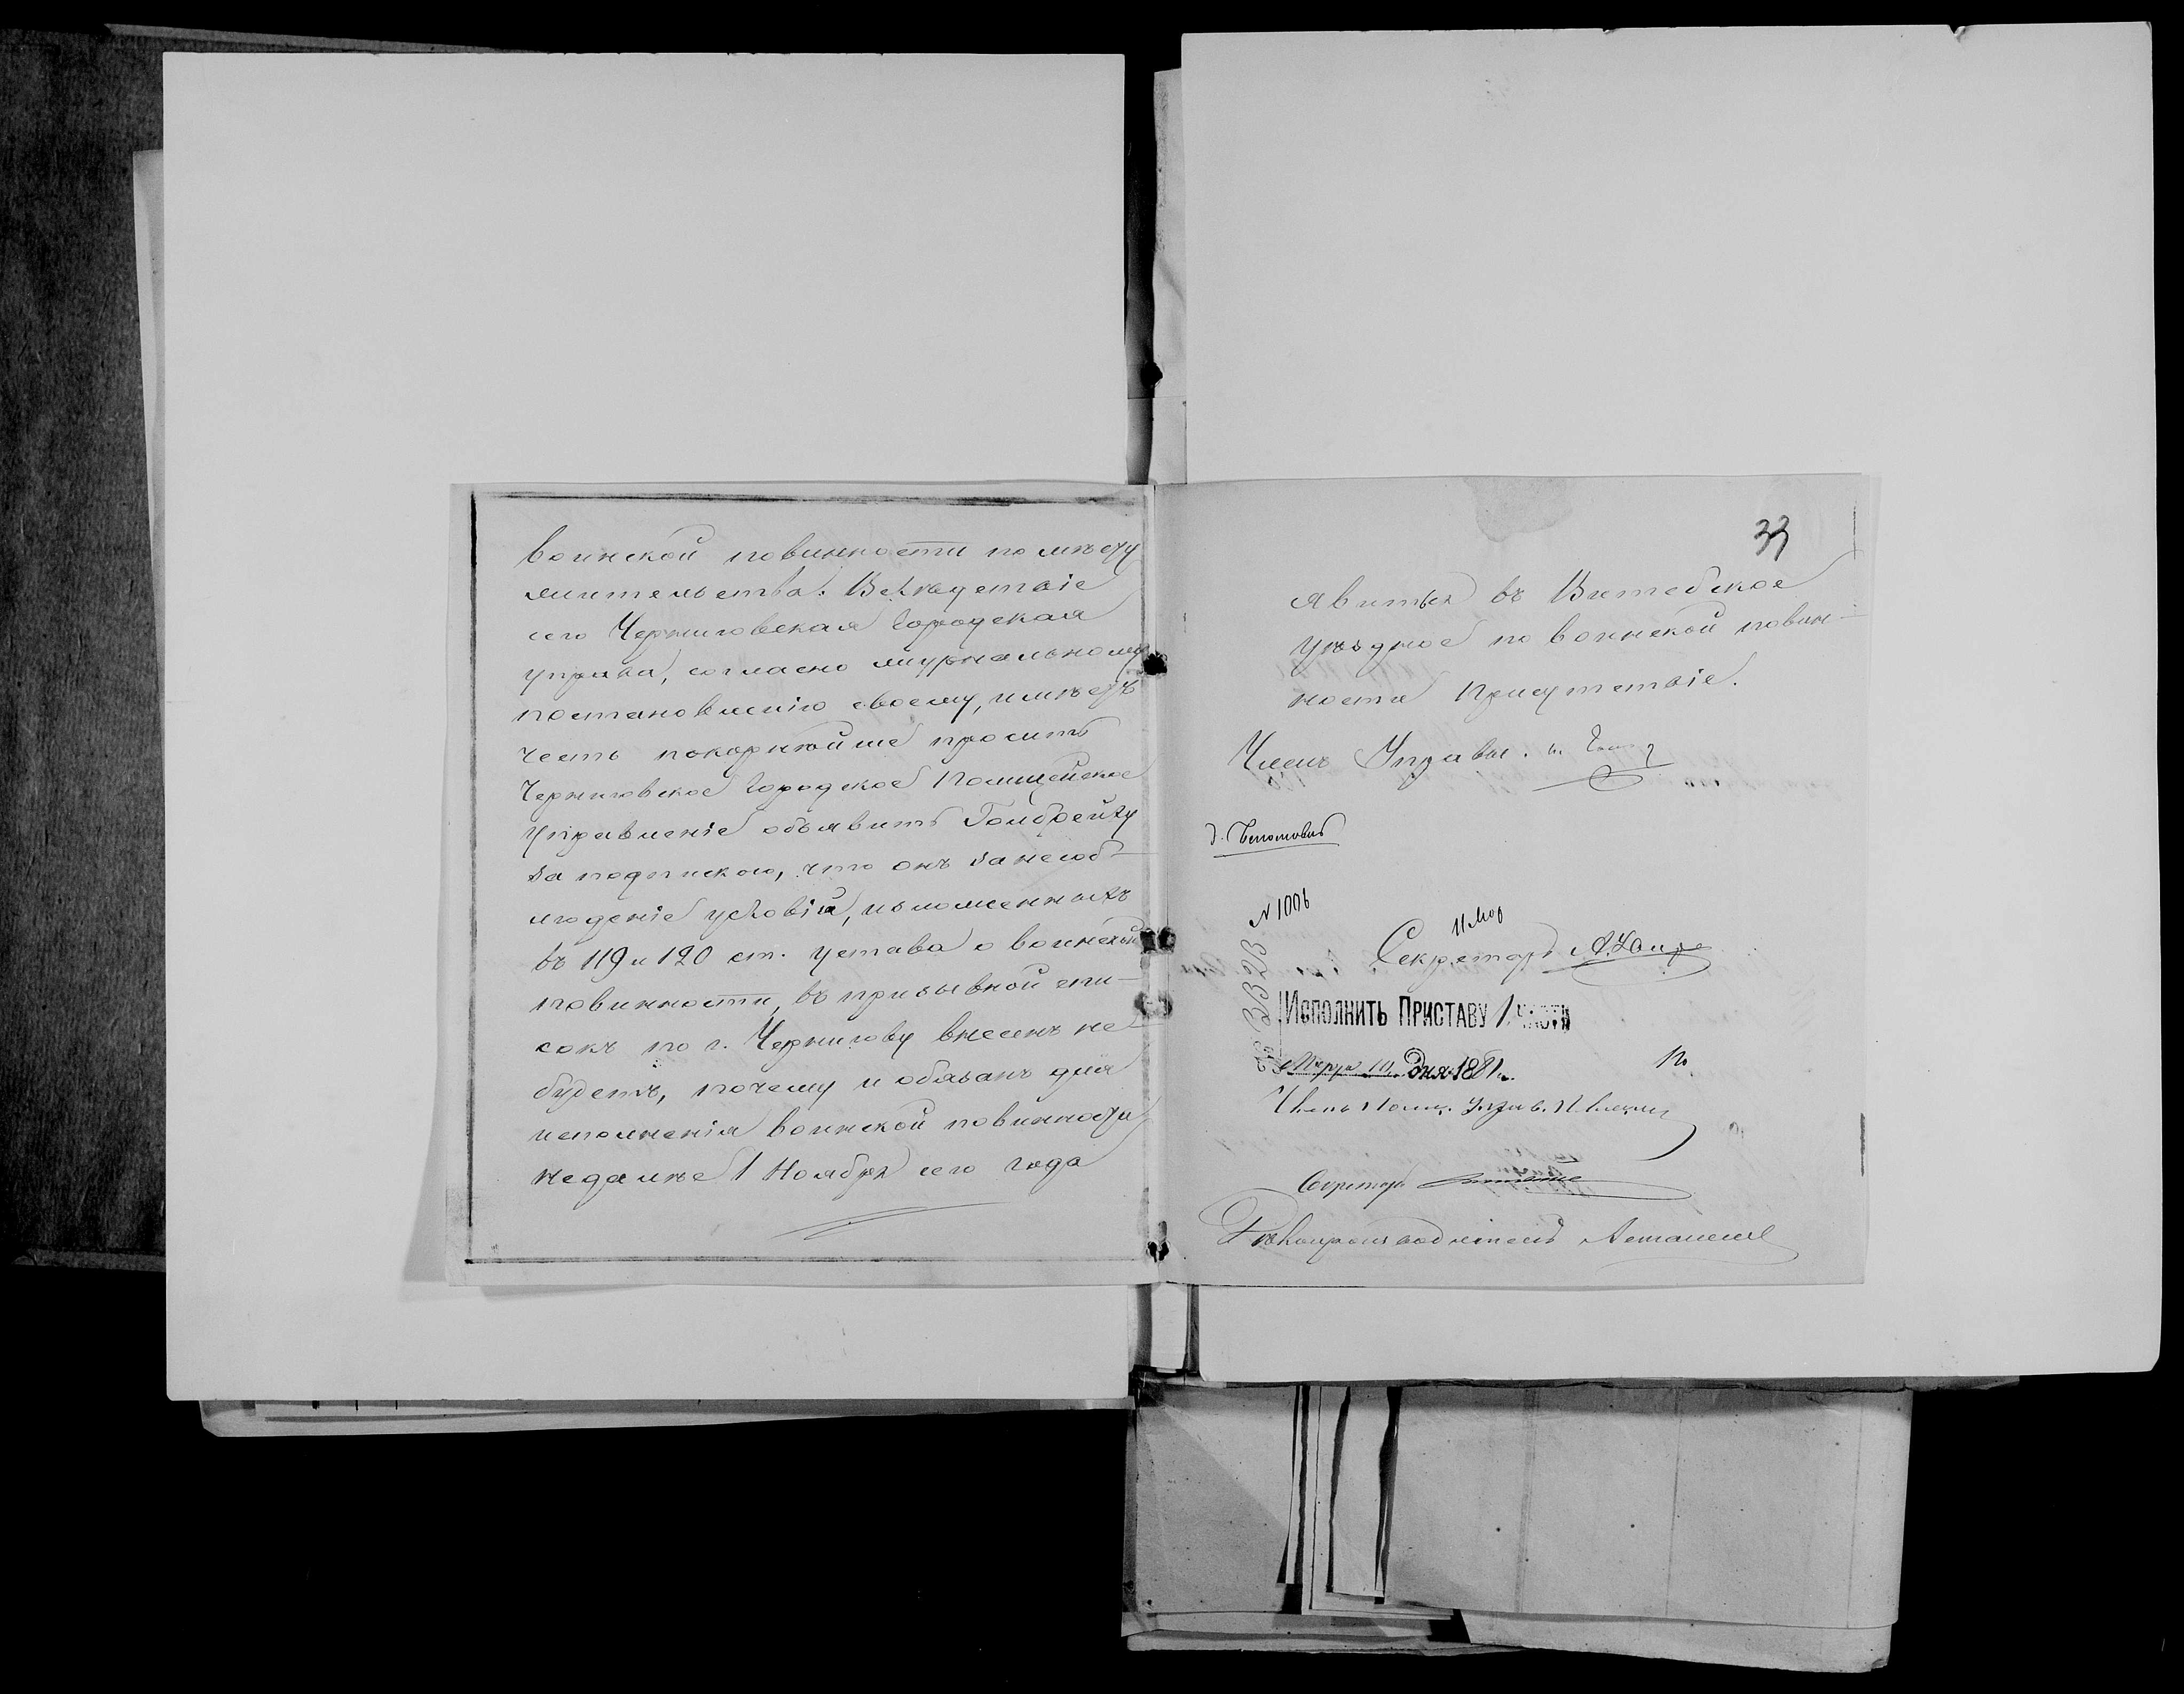 воинской повинности по мѣсту
жительства. Вслѣдствіе
сего Черниговская Городская
управа, согласно журнальному
постановленію своему, имѣетъ
честь покорнѣйше просить
Черниговское Городское Полицейское
управленіе объявить Гомбрейху
за подпискою, что онъ за несоб-
люденіе условій, изложенныхъ
въ 119 и 120 ст. устава о воинской
повинности, въ призывной спи-
сокъ по г. Чернигову внесенъ не
будетъ, почему и обязанъ для
исполненія воинской повинности
не далѣе 1 Ноября сего года
33
явиться въ Витебское
уѣздное по воинской повин-
ности Присутствіе.
Членъ Управы.
N 1006
11 Мар
Секретарь
3323
Исполнить Приставу 1 части
Марта 10 дня 1881 г.
Членъ Полиц. Управ.
Секретарь
Дѣлопроизводитель